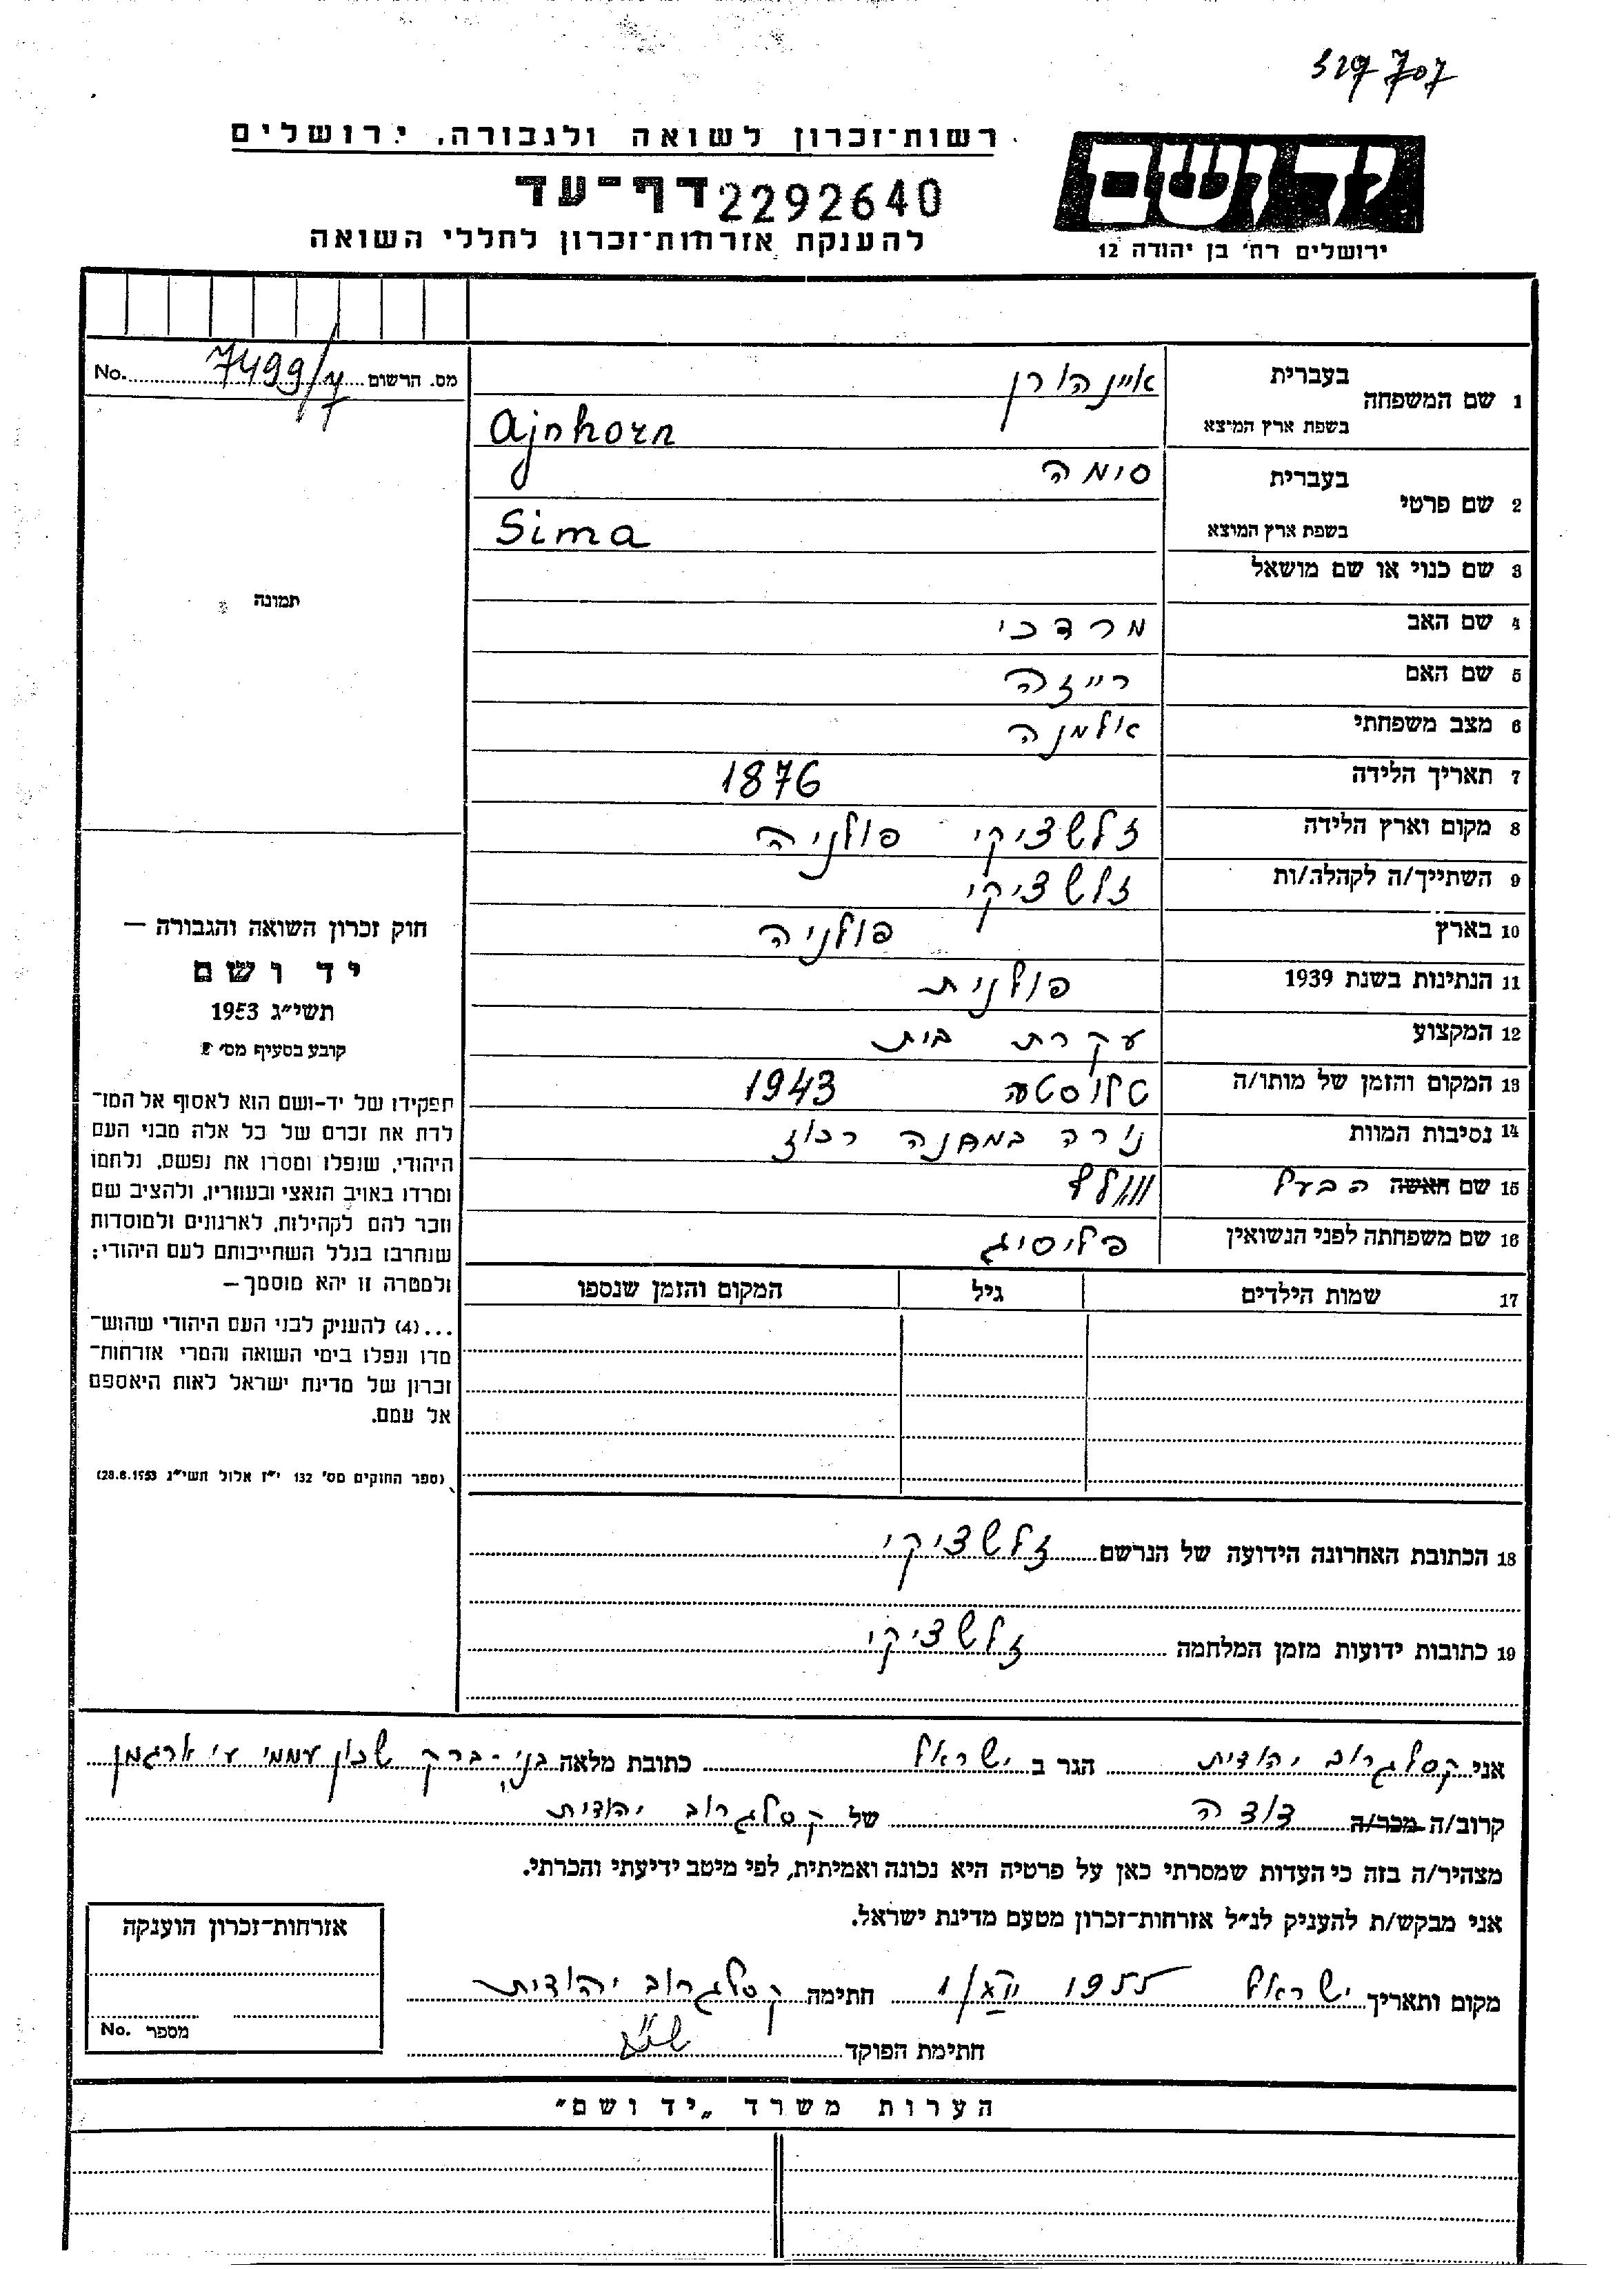 329707
רשות־זכרון לשואה ולגבורה, ירושלים
יד ושם
דף־עד 2292640
להענקת אזרחות־זכרון לחללי השואה
ירושלים רח' בן יהודה 12
מס. הרשום 7499/7 No.
1 שם המשפחה בעברית איינהורן
בשפת ארץ המוצא Ajnhorn
2 שם פרטי בעברית סימה
בשפת ארץ המוצא Sima
3 שם כנוי או שם מושאל
תמונה
4 שם האב מרדכי
5 שם האם רייזה
6 מצב משפחתי אלמנה
7 תאריך הלידה 1876
8 מקום וארץ הלידה זלשציקי פולניה
9 השתייך/ה לקהלה/ות זלשציקי
10 בארץ פולניה
11 הנתינות בשנת 1939 פולנית
12 המקצוע עקרת בית
13 המקום והזמן של מותו/ה טלוסטה 1943
14 נסיבות המוות נורה במחנה רכוז
15 שם האשה הבעל וולף
16 שם משפחתה לפני הנשואין פליסיג
17 שמות הילדים גיל המקום והזמן שנספו
חוק זכרון השואה והגבורה —
יד ושם
תשי״ג 1953
קובע בסעיף מס׳ 2
תפקידו של יד-ושם הוא לאסוף אל המו־
לדת את זכרם של כל אלה מבני העם
היהודי, שנפלו ומסרו את נפשם, נלחמו
ומרדו באויב הנאצי ובעוזריו, ולהציב שם
וזכר להם לקהילות, לארגונים ולמוסדות
שנחרבו בגלל השתייכותם לעם היהודי;
ולמטרה זו יהא מוסמך —
...(4) להעניק לבני העם היהודי שהוש־
מדו ונפלו בימי השואה והמרי אזרחות־
זכרון של מדינת ישראל לאות היאספם
אל עמם.
(ספר החוקים מס׳ 132 י״ז אלול תשי״ג 28.8.1953)
18 הכתובת האחרונה הידועה של הנרשם זלשציקי
19 כתובות ידועות מזמן המלחמה זלשציקי
אני קסלגרוב יהודית הגר ב ישראל כתובת מלאה בני-ברק שכון עממי ע״י ארגמן
קרוב/ה מכר/ה דודה של קסלגרוב יהודית
מצהיר/ה בזה כי העדות שמסרתי כאן על פרטיה היא נכונה ואמיתית, לפי מיטב ידיעתי והכרתי.
אני מבקש/ת להעניק לנ״ל אזרחות־זכרון מטעם מדינת ישראל.
מקום ותאריך ישראל 1955 חתימה קסלגרוב יהודית
חתימת הפוקד
אזרחות־זכרון הוענקה
מספר No.
הערות משרד „יד ושם״